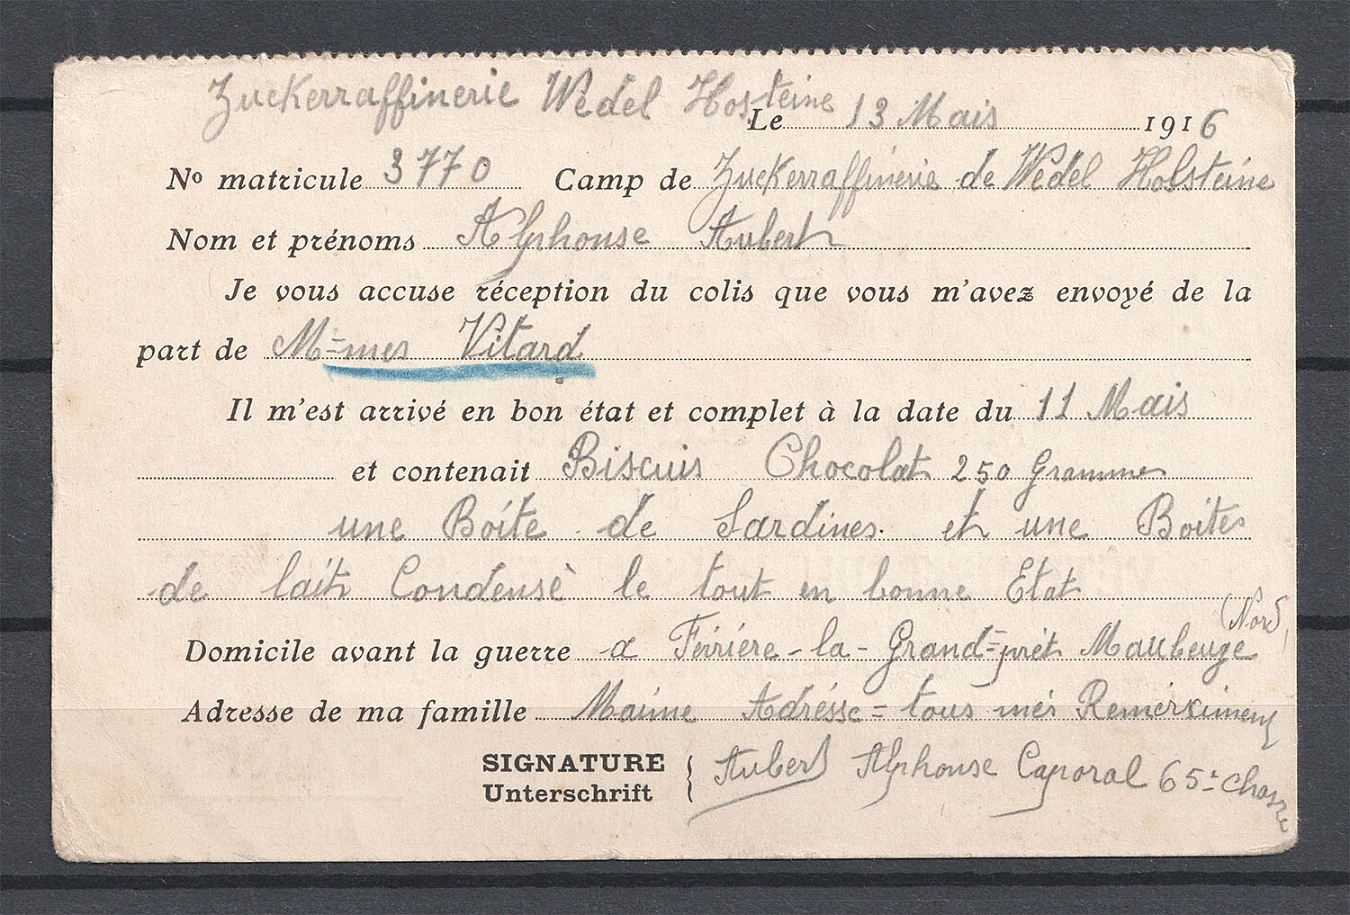 Zuckerraffinerie Wedel Hosteine
Le 13 Mais 1916
No matricule 3770 Camp de Zuckerraffinerie de Wedel Holsteine
Nom et prénoms Alphonse Aubert
Je vous accuse réception du colis que vous m'avez envoyé de la
part de M=mes Vitard
Il m'est arrivé en bon état et complet à la date du 11 Mais
et contenait Biscuis Chocolat 250 Grammes
une Boite de Sardines et une Boites
de lait Condensè le tout en bonne Etat
(Nord)
Domicile avant la guerre a Feiriére-la-Grand=prét Maubeuge
Adresse de ma famille Maime Adrésse = tous mes Remérximent
SIGNATURE
Unterschrift
Aubert Alphonse Caporal 65e Chasse